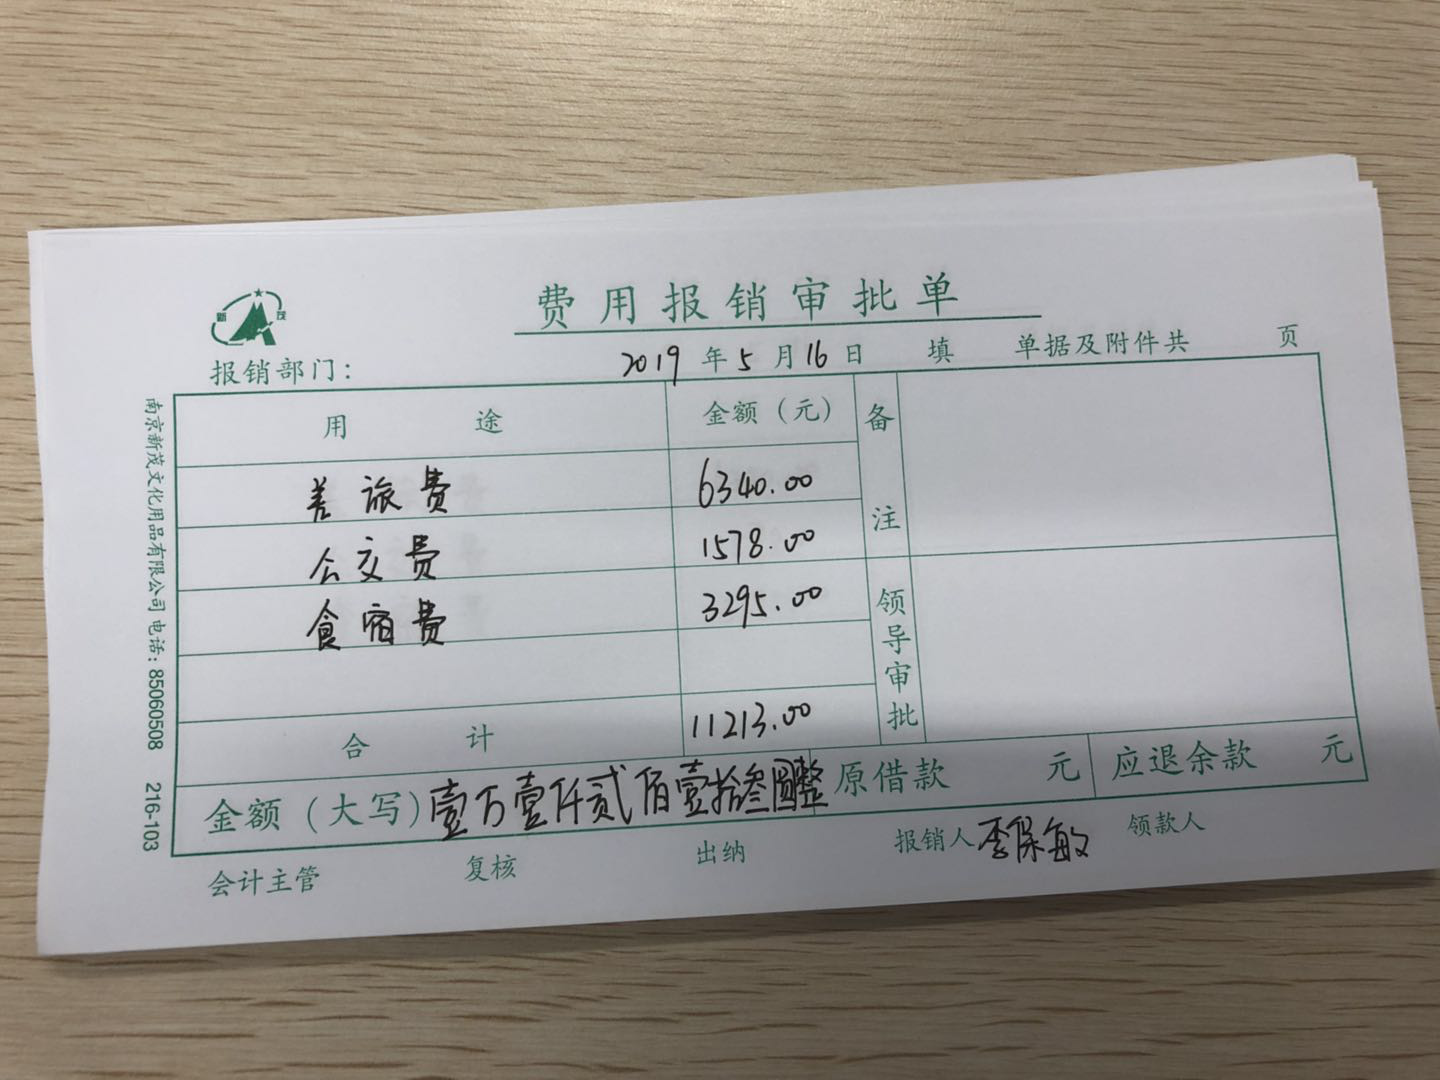 新 茂
费用报销审批单
报销部门： 2019 年 5 月 16 日 填 单据及附件共 页
用 途 金额（元） 备注
差旅费 6340.00
公交费 1578.00
食宿费 3295.00
领导审批
合 计 11213.00
金额（大写）壹万壹仟贰佰壹拾叁圆整 原借款 元 应退余款 元
会计主管 复核 出纳 报销人 李保敏 领款人
南京新茂文化用品有限公司 电话：85060508 216-103